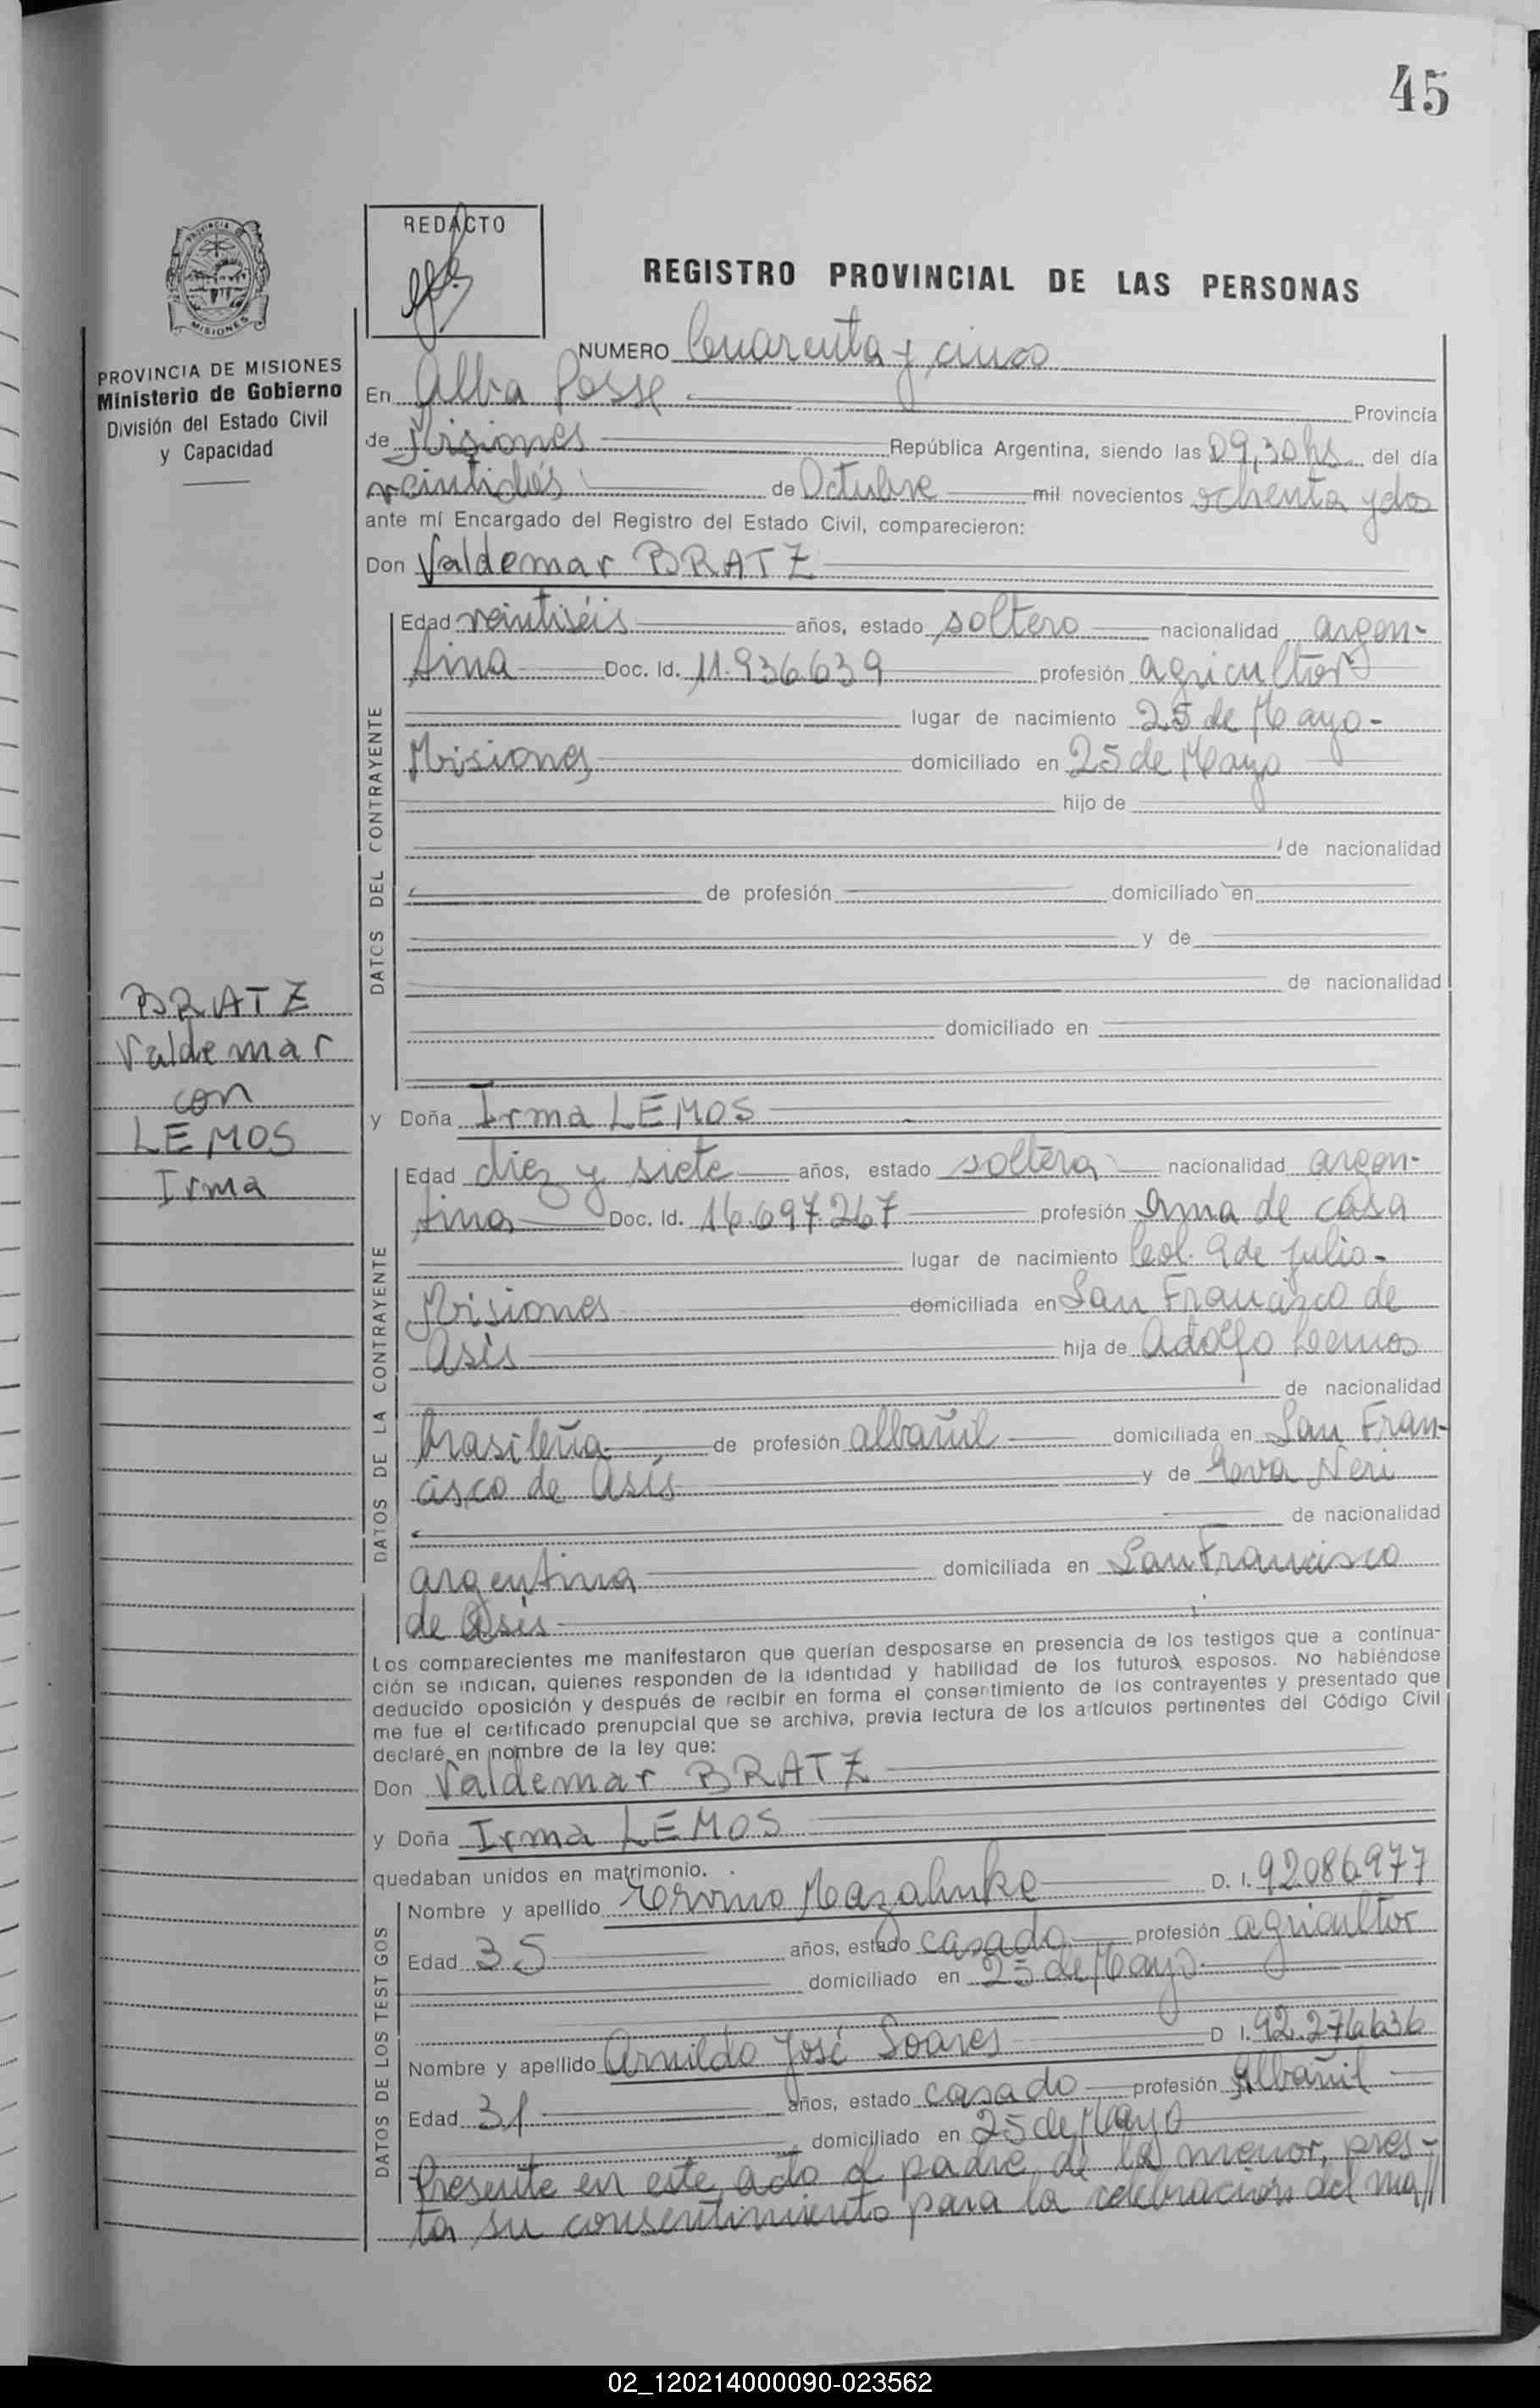 45
REDACTO
REGISTRO PROVINCIAL DE LAS PERSONAS
PROVINCIA DE MISIONES
Ministerio de Gobierno
División del Estado Civil
y Capacidad
BRATZ
Valdemar
con
LEMOS
Irma
NUMERO Cuarenta y cinco
En Alba Posse Provincia
de Misiones República Argentina, siendo las 09,30hs del día
veintidós de Octubre mil novecientos ochenta y dos
ante mí Encargado del Registro del Estado Civil, comparecieron:
Don Valdemar BRATZ
DATOS DEL CONTRAYENTE
Edad veintiséis años, estado soltero nacionalidad argen-
tina Doc. Id. 11.936.639 profesión agricultor
lugar de nacimiento 25 de Mayo-
Misiones domiciliado en 25 de Mayo
hijo de
de nacionalidad
de profesión domiciliado en
y de
de nacionalidad
domiciliado en
y Doña Irma LEMOS
DATOS DE LA CONTRAYENTE
Edad diez y siete años, estado soltera nacionalidad argen-
tina Doc. Id. 16.697.267 profesión Ama de casa
lugar de nacimiento Col. 9 de Julio-
Misiones domiciliada en San Francisco de
Asís hija de Adolfo Lemos
de nacionalidad
brasileña de profesión albañil domiciliada en San Fran-
cisco de Asís y de Neri
de nacionalidad
argentina domiciliada en San Francisco
de Asís
Los comparecientes me manifestaron que querían desposarse en presencia de los testigos que a continua-
ción se indican, quienes responden de la identidad y habilidad de los futuros esposos. No habiéndose
deducido oposición y después de recibir en forma el consentimiento de los contrayentes y presentado que
me fue el certificado prenupcial que se archiva, previa lectura de los artículos pertinentes del Código Civil
declaré en nombre de la ley que:
Don Valdemar BRATZ
y Doña Irma LEMOS
quedaban unidos en matrimonio.
DATOS DE LOS TESTIGOS
Nombre y apellido D. I. 92086977
Edad 35 años, estado casado profesión agricultor
domiciliado en 25 de Mayo
Nombre y apellido Arnildo José Soares D I. 92.276636
Edad 31 años, estado casado profesión Albañil
domiciliado en 25 de Mayo
Presente en este acto el padre de la menor, pres-
ta su consentimiento para la celebración del ma//
02_120214000090-023562